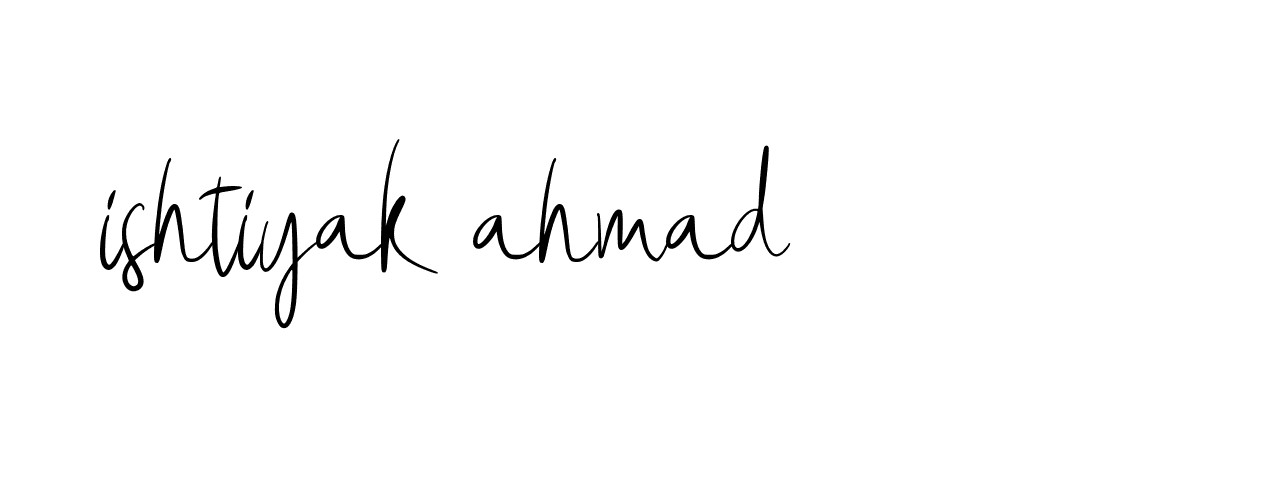 ishtiyak ahmad